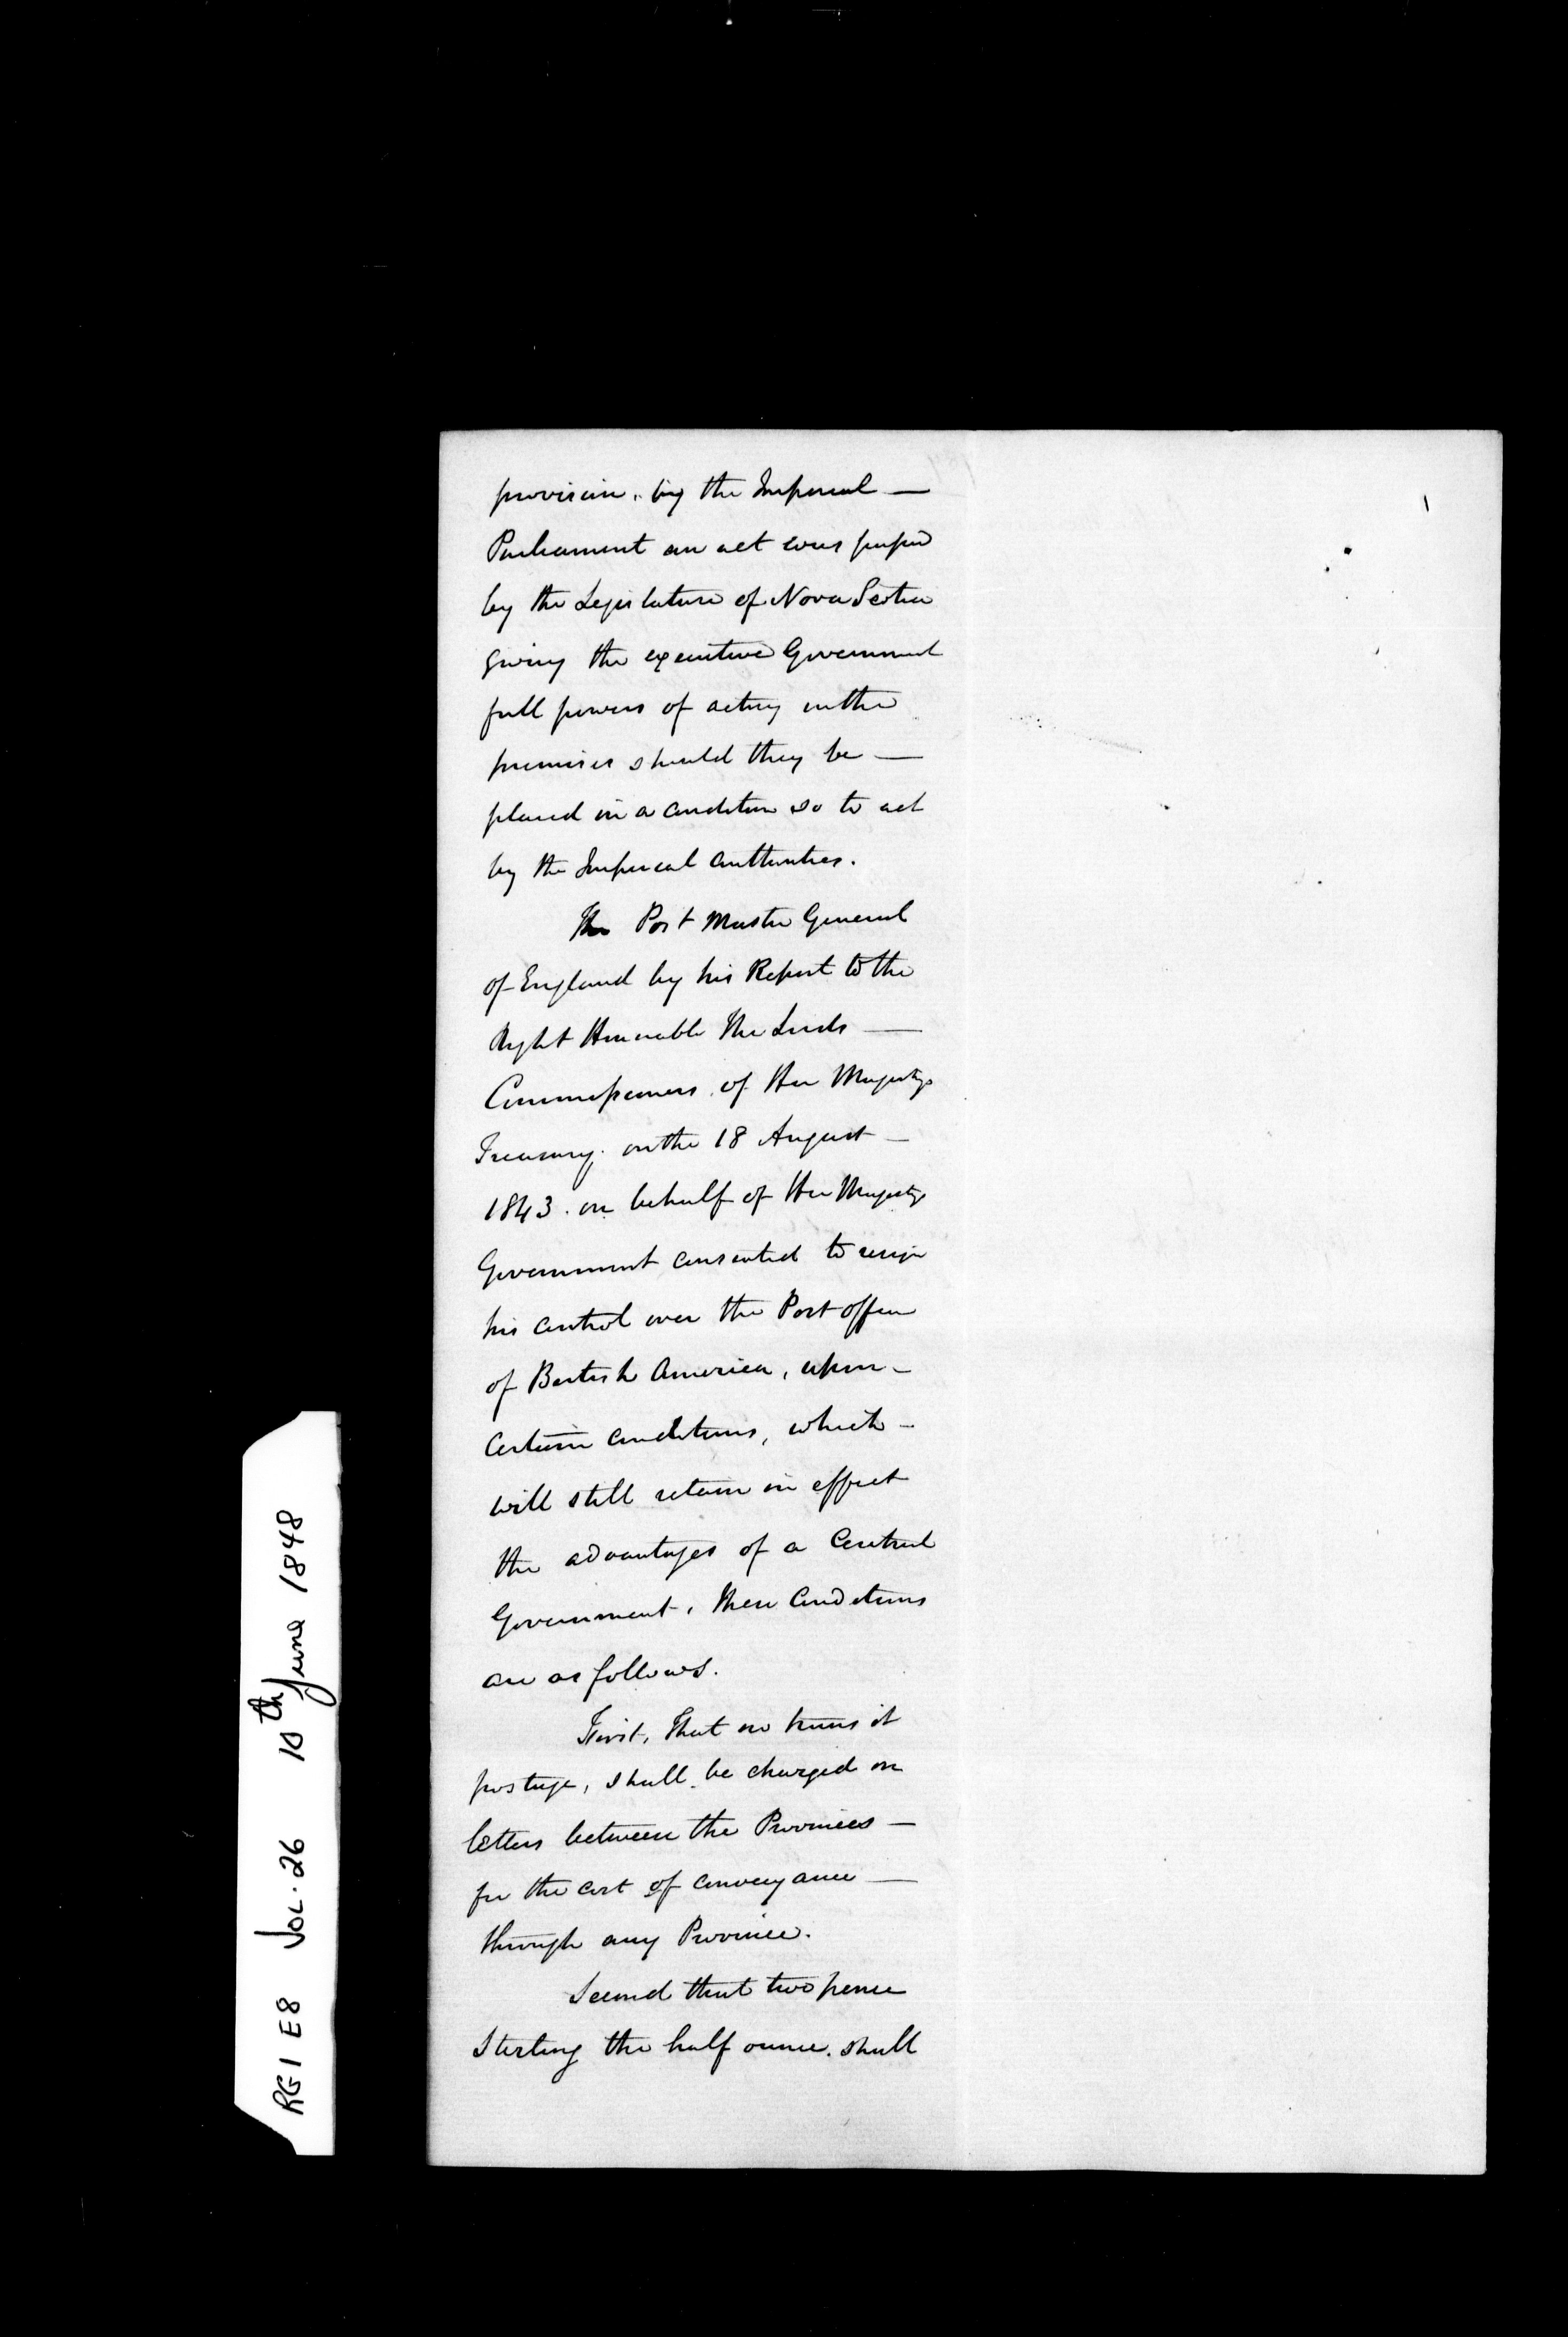 provision, by the Imperial —
Parliament an act was passed
by the Legislature of Nova Scotia
giving the executive Government
full powers of acting in the
premises should they be —
placed in a condition so to act
by the Imperial authorities.
The Post Master General
of England by his Report to the
Right Honorable The Lords —
Commissioners of Her Majestys
Treasury. on the 18 August —
1843. on behalf of Her Majestys
Government consented to resign
his control over the Post office
of British America, upon —
certain conditions, which —
will still retain in effect
the advantages of a Central
Government, these Conditions
are as follows.
First, That no transit
postage, shall be charged on
letters between the Provinces —
for the cost of conveyance —
through any Province.
Second that two pence
Sterling the half ounce. shall
RG1 E8 VOL. 26 10th June 1848